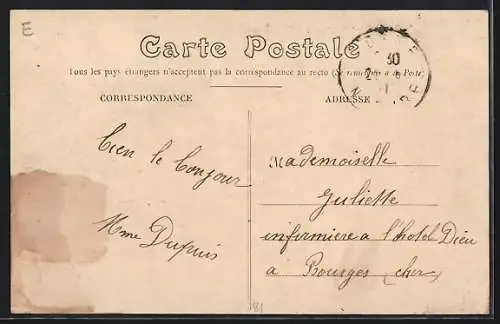 E
Carte Postale
Tous les pays étrangers n'acceptent pas la correspondance au recto (Se renseigner à la Poste)
CORRESPONDANCE
ADRESSE
bien le bonjour
Mme Dupuis
Mademoiselle
Juliette
infirmiere a l'hotel Dieu
a Bourges (cher)
81